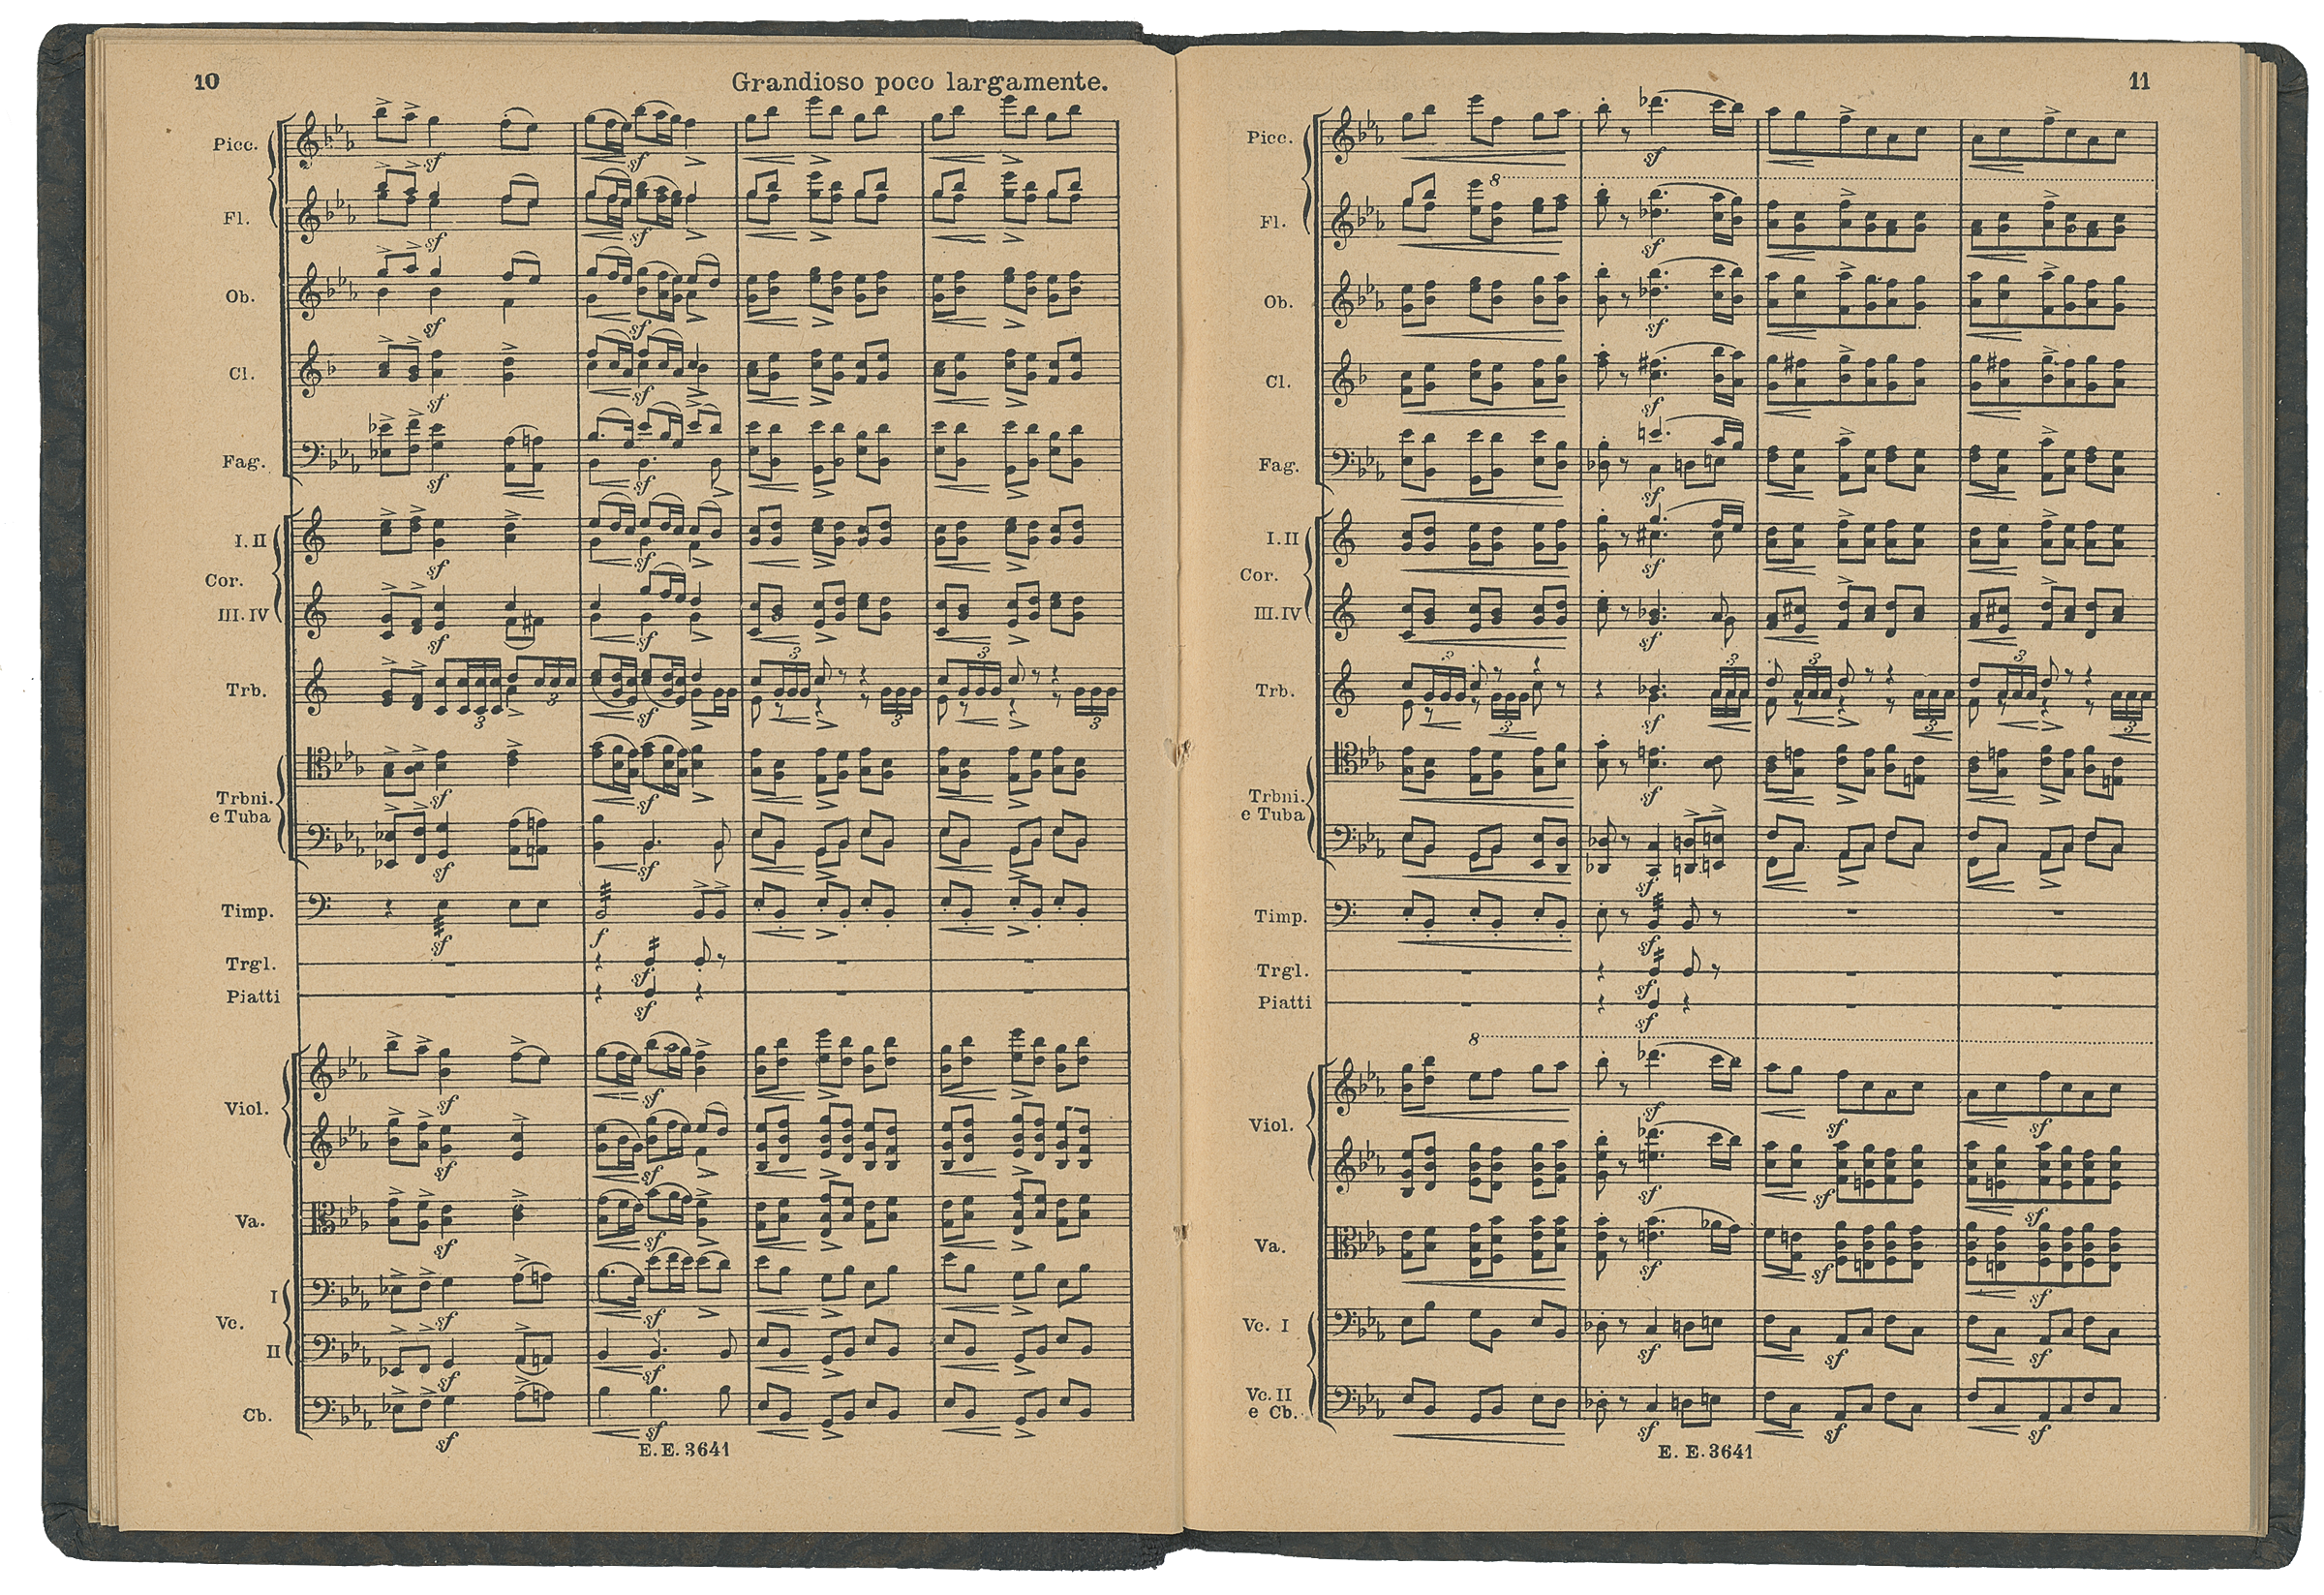 10
Grandioso poco largamente.
Picc.
Fl.
Ob.
Cl.
Fag.
I. II
Cor.
III. IV
Trb.
Trbni.
e Tuba
Timp.
Trgl.
Piatti
Viol.
Va.
I
Vc.
II
Cb.
E. E. 3641
11
Picc.
Fl.
8
Ob.
Cl.
Fag.
I. II
Cor.
III. IV
Trb.
Trbni.
e Tuba
Timp.
Trgl.
Piatti
8
Viol.
Va.
Vc. I
Vc. II
e Cb.
E. E. 3641